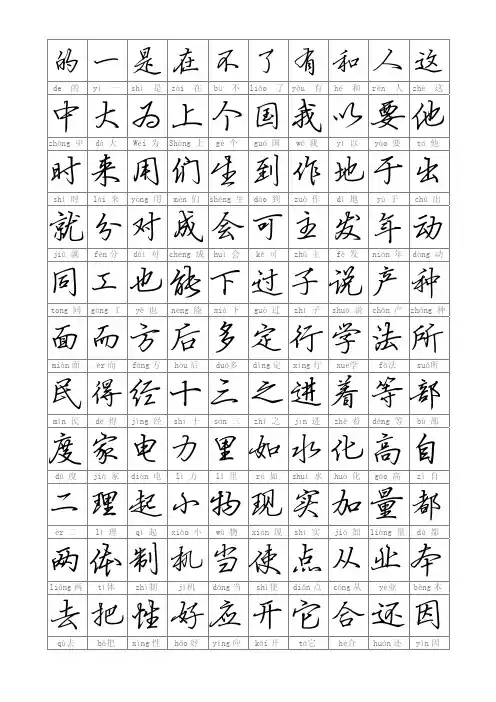 的 一 是 在 不 了 有 和 人 这
de 的 yī 一 shì 是 zài 在 bù 不 liǎo 了 yǒu 有 hé 和 rén 人 zhè 这
中 大 为 上 个 国 我 以 要 他
zhōng中 dà 大 Wéi 为 Shàng上 gè 个 guó国 wǒ 我 yǐ 以 yào要 tā 他
时 来 用 们 生 到 作 地 于 出
shí 时 lái 来 yòng 用 mén 们 shēng 生 dào 到 zuò 作 dì 地 yú 于 chū 出
就 分 对 成 会 可 主 发 年 动
jiù 就 fēn 分 duì 对 chéng 成 huì 会 kě 可 zhǔ 主 fā 发 nián 年 dòng 动
同 工 也 能 下 过 子 说 产 种
tóng 同 gōng 工 yě 也 néng 能 xià 下 guò 过 zǐ 子 shuō 说 chǎn 产 zhǒng 种
面 而 方 后 多 定 行 学 法 所
miàn面 ér而 fāng方 hòu后 duō多 dìng定 xíng行 xué学 fǎ法 suǒ所
民 得 经 十 三 之 进 着 等 部
mín 民 dé 得 jīng 经 shí 十 sān 三 zhī 之 jìn 进 zhe 着 děng 等 bù 部
度 家 电 力 里 如 水 化 高 自
dù 度 jiā 家 diàn 电 lì 力 lǐ 里 rú 如 shuǐ 水 huà 化 gāo 高 zì 自
二 理 起 小 物 现 实 加 量 都
èr 二 lǐ 理 qǐ 起 xiǎo 小 wù 物 xiàn 现 shí 实 jiā 加 liàng 量 dū 都
两 体 制 机 当 使 点 从 业 本
liǎng两 tǐ体 zhì制 jī机 dāng当 shǐ使 diǎn点 cóng从 yè业 běn本
去 把 性 好 应 开 它 合 还 因
qù去 bǎ把 xìng性 hǎo好 yīng应 kāi开 tā它 hé合 huán还 yīn因